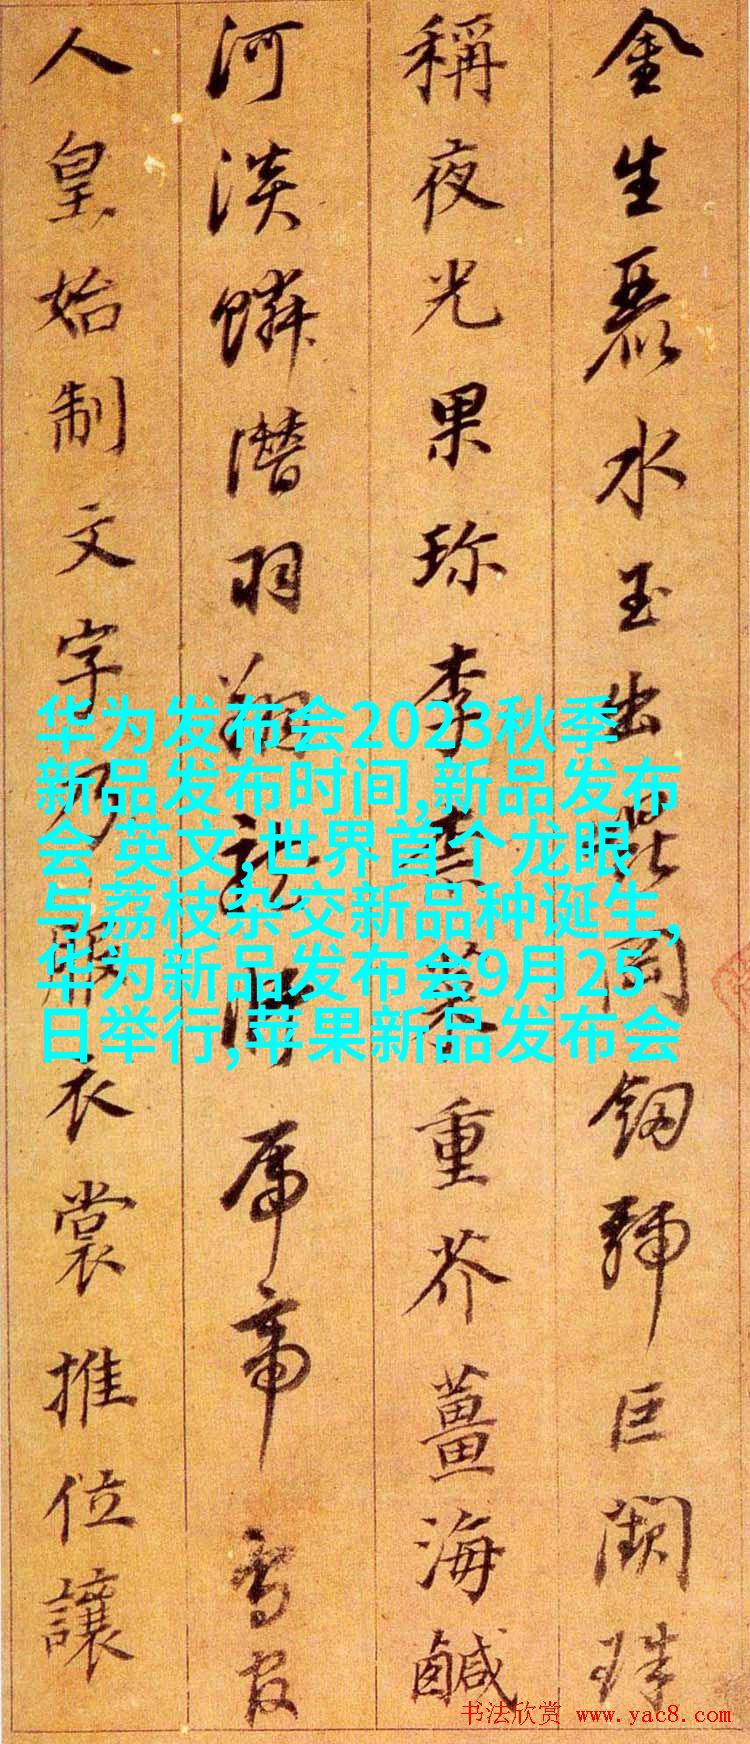 金生麗水玉出崑岡劒號巨闕珠
稱夜光果珍李柰菜重芥薑海鹹
河淡鱗潛羽翔龍師帝鳥官
人皇始制文字乃服衣裳推位讓
华为发布会2023秋季
新品发布时间,新品发布
会 英文,世界首个龙眼
与荔枝杂交新品种诞生,
华为新品发布会9月25
日举行,苹果新品发布会
书法欣赏 www.yac8.com